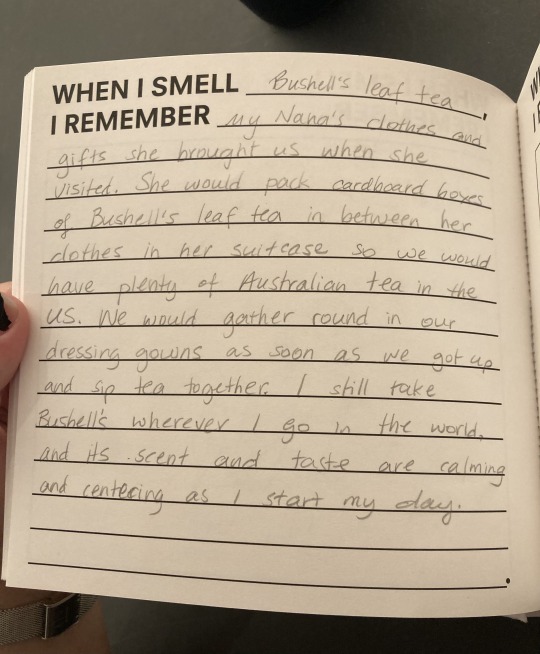 WHEN I SMELL Bushell's leaf tea,
I REMEMBER my Nana's clothes and
gifts she brought us when she
visited. She would pack cardboard boxes
of Bushell's leaf tea in between her
clothes in her suitcase so we would
have plenty of Australian tea in the
US. We would gather round in our
dressing gowns as soon as we got up
and sip tea together. I still take
Bushell's wherever I go in the world,
and its scent and taste are calming
and centering as I start my day.
.